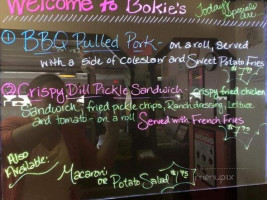 Welcome to Bokie's
Today's Specials are
① BBQ Pulled Pork - on a roll, served
with a side of coleslaw and Sweet Potato Fries
② Crispy Dill Pickle Sandwich - crispy fried chicken
Sandwich, fried pickle chips, Ranch dressing, Lettuce
and tomato - on a roll Served with French Fries
Also
Available:
Macaroni
or Potato Salad $1.95
menupix